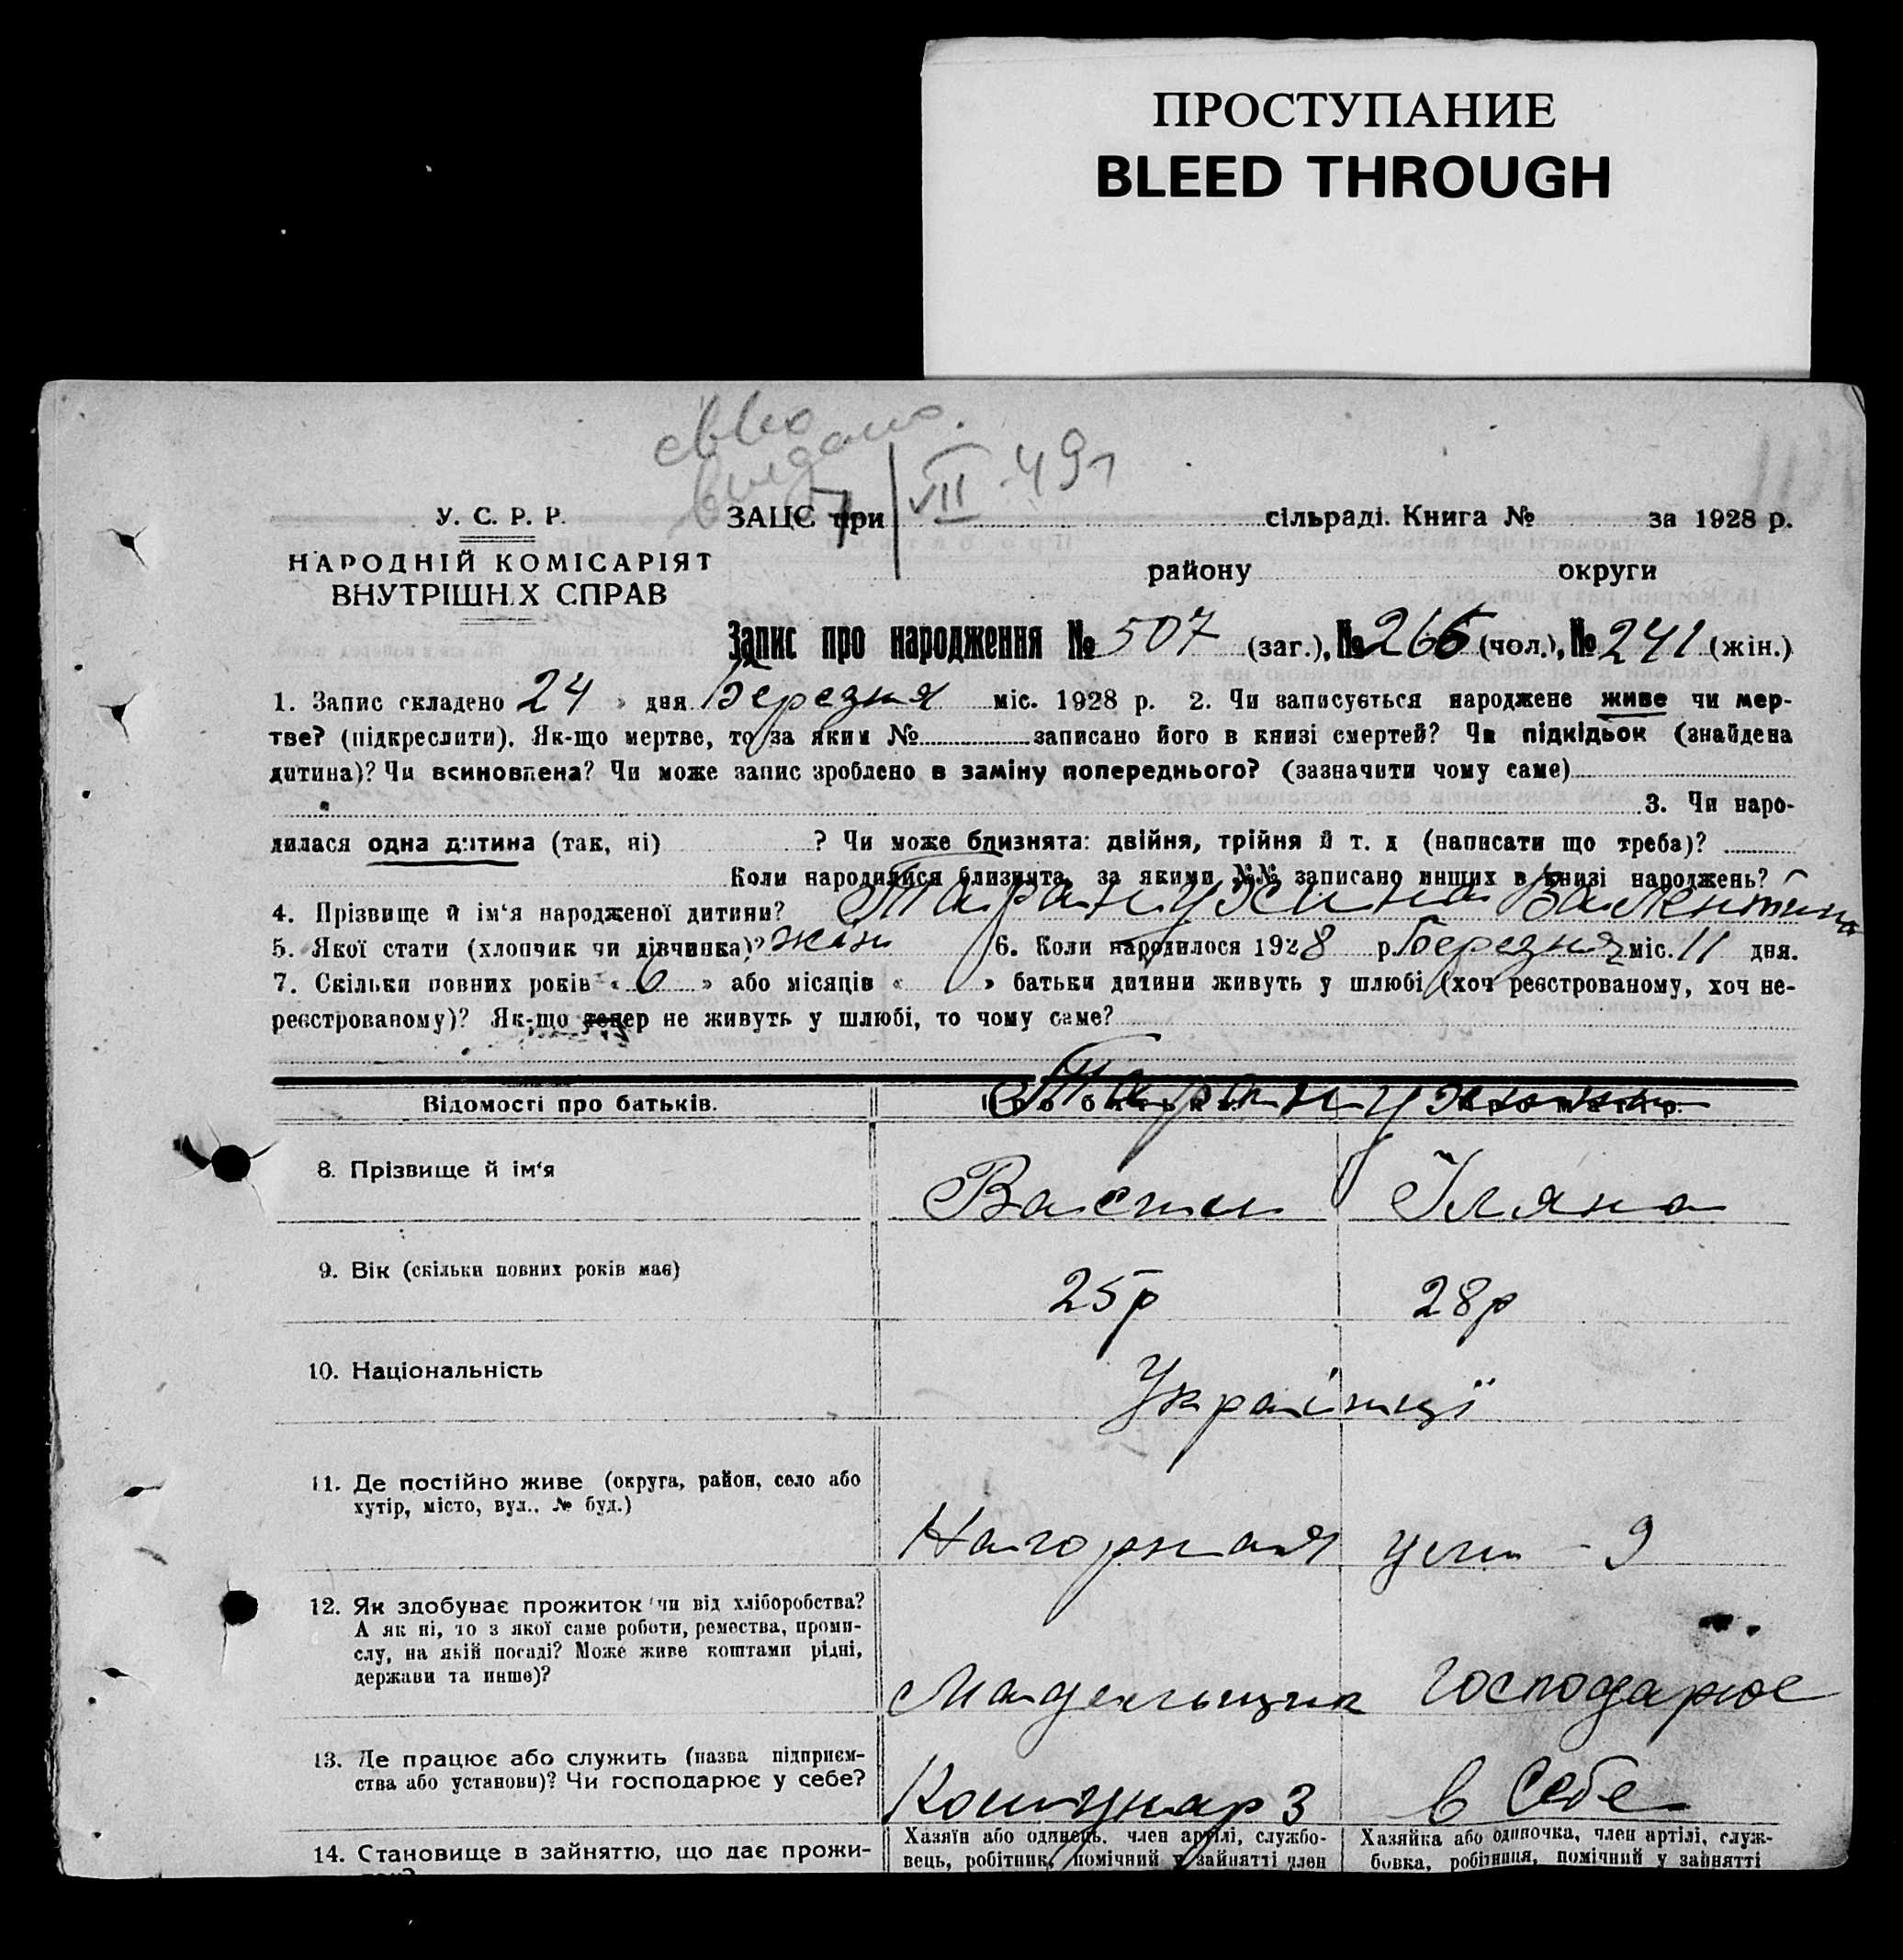 ПРОСТУПАНИЕ
BLEED THROUGH
свид
видано.
7/VII-49г
У. С. Р. Р.
НАРОДНІЙ КОМІСАРІЯТ
ВНУТРІШНІХ СПРАВ
ЗАЦС при сільраді. Книга № за 1928 р.
району округи
Запис про народження № 507 (заг.), № 266 (чол.), № 241 (жін.)
1. Запис складено 24 » дня Березня міс. 1928 р. 2. Чи записується народжене живе чи мер-
тве? (підкреслити). Як-що мертве, то за яким № записано його в книзі смертей? Чи підкідьок (знайдена
дитина)? Чи всиновлена? Чи може запис зроблено в заміну попереднього? (зазначити чому саме)
3. Чи наро-
дилася одна дитина (так, ні) ? Чи може близнята: двійня, трійня й т. д (написати що треба)?
Коли народилися близнята, за якими №№ записано инших в книзі народжень?
4. Прізвище й ім‘я народженої дитини? Таранухина Валентина
5. Якої стати (хлопчик чи дівчинка)? жін 6. Коли народилося 1928 р. березня міс. 11 дня.
7. Скільки повних років « 6 » або місяців « » батьки дитини живуть у шлюбі (хоч реєстрованому, хоч не-
реєстрованому)? Як-що тепер не живуть у шлюбі, то чому саме?
Таранухини
Відомості про батьків. Про батька Про матір
8. Прізвище й ім‘я Васили Уляна
9. Вік (скільки повних років має) 25р 28р
10. Національність Українці
11. Де постійно живе (округа, район, село або
хутір, місто, вул., № буд.)
Нагорная ули - 9
12. Як здобуває прожиток чи від хліборобства?
А як ні, то з якої саме роботи, ремества, проми-
слу, на якій посаді? Може живе коштами рідні,
держави та инше)?
Мадельщик господарює
13. Де працює або служить (назва підприєм-
ства або установи)? Чи господарює у себе?
Комунар З в себе
14. Становище в зайняттю, що дає прожи-
Хазяїн або одинець, член артілі, службо-
вець, робітник, помічний у зайнятті член
Хазяйка або одиночка, член артілі, служ-
бовка, робітниця, помічний у зайнятті